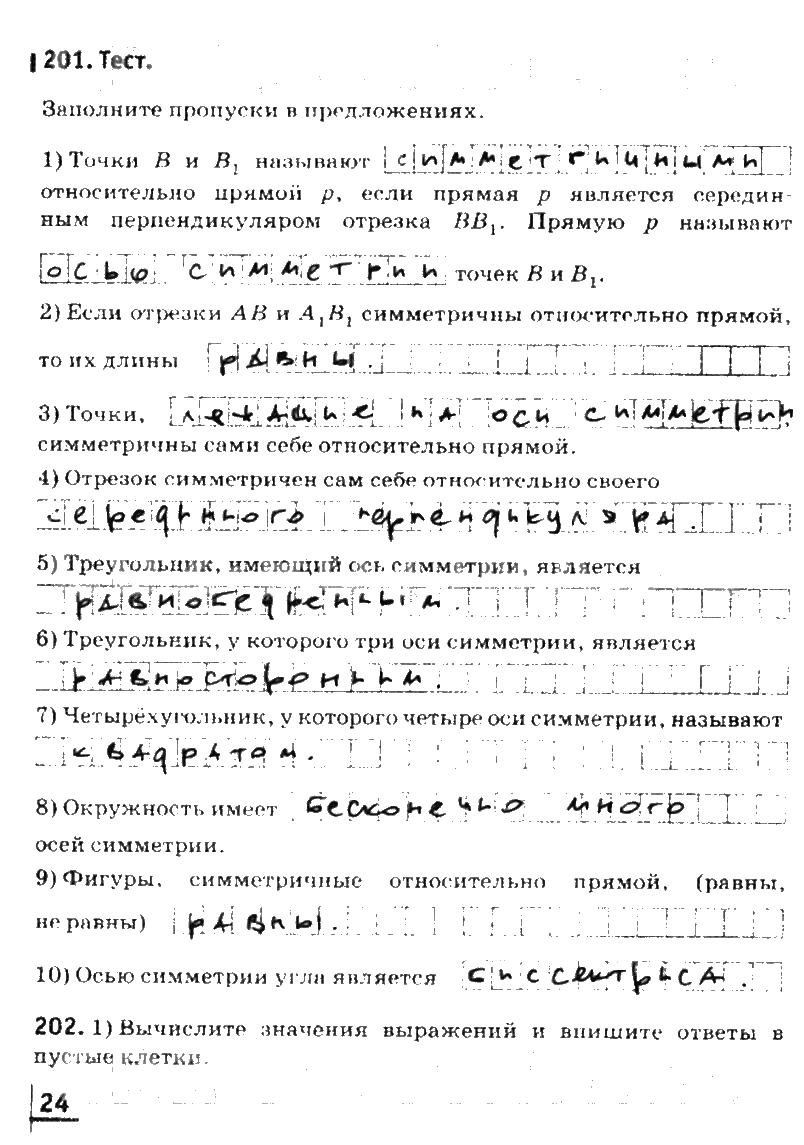 201. Тест.
Заполните пропуски в предложениях.
1) Точки B и B₁ называют симметричными
относительно прямой p, если прямая p является середин-
ным перпендикуляром отрезка BB₁. Прямую p называют
осью симметрии точек B и B₁.
2) Если отрезки AB и A₁B₁ симметричны относительно прямой,
то их длины равны.
3) Точки, лежащие на оси симметрии
симметричны сами себе относительно прямой.
4) Отрезок симметричен сам себе относительно своего
серединного перпендикуляра.
5) Треугольник, имеющий ось симметрии, является
равнобедренным.
6) Треугольник, у которого три оси симметрии, является
равносторонним.
7) Четырёхугольник, у которого четыре оси симметрии, называют
квадратом.
8) Окружность имеет бесконечно много
осей симметрии.
9) Фигуры, симметричные относительно прямой, (равны,
не равны) равны.
10) Осью симметрии угла является биссектриса.
202. 1) Вычислите значения выражений и впишите ответы в
пустые клетки.
24